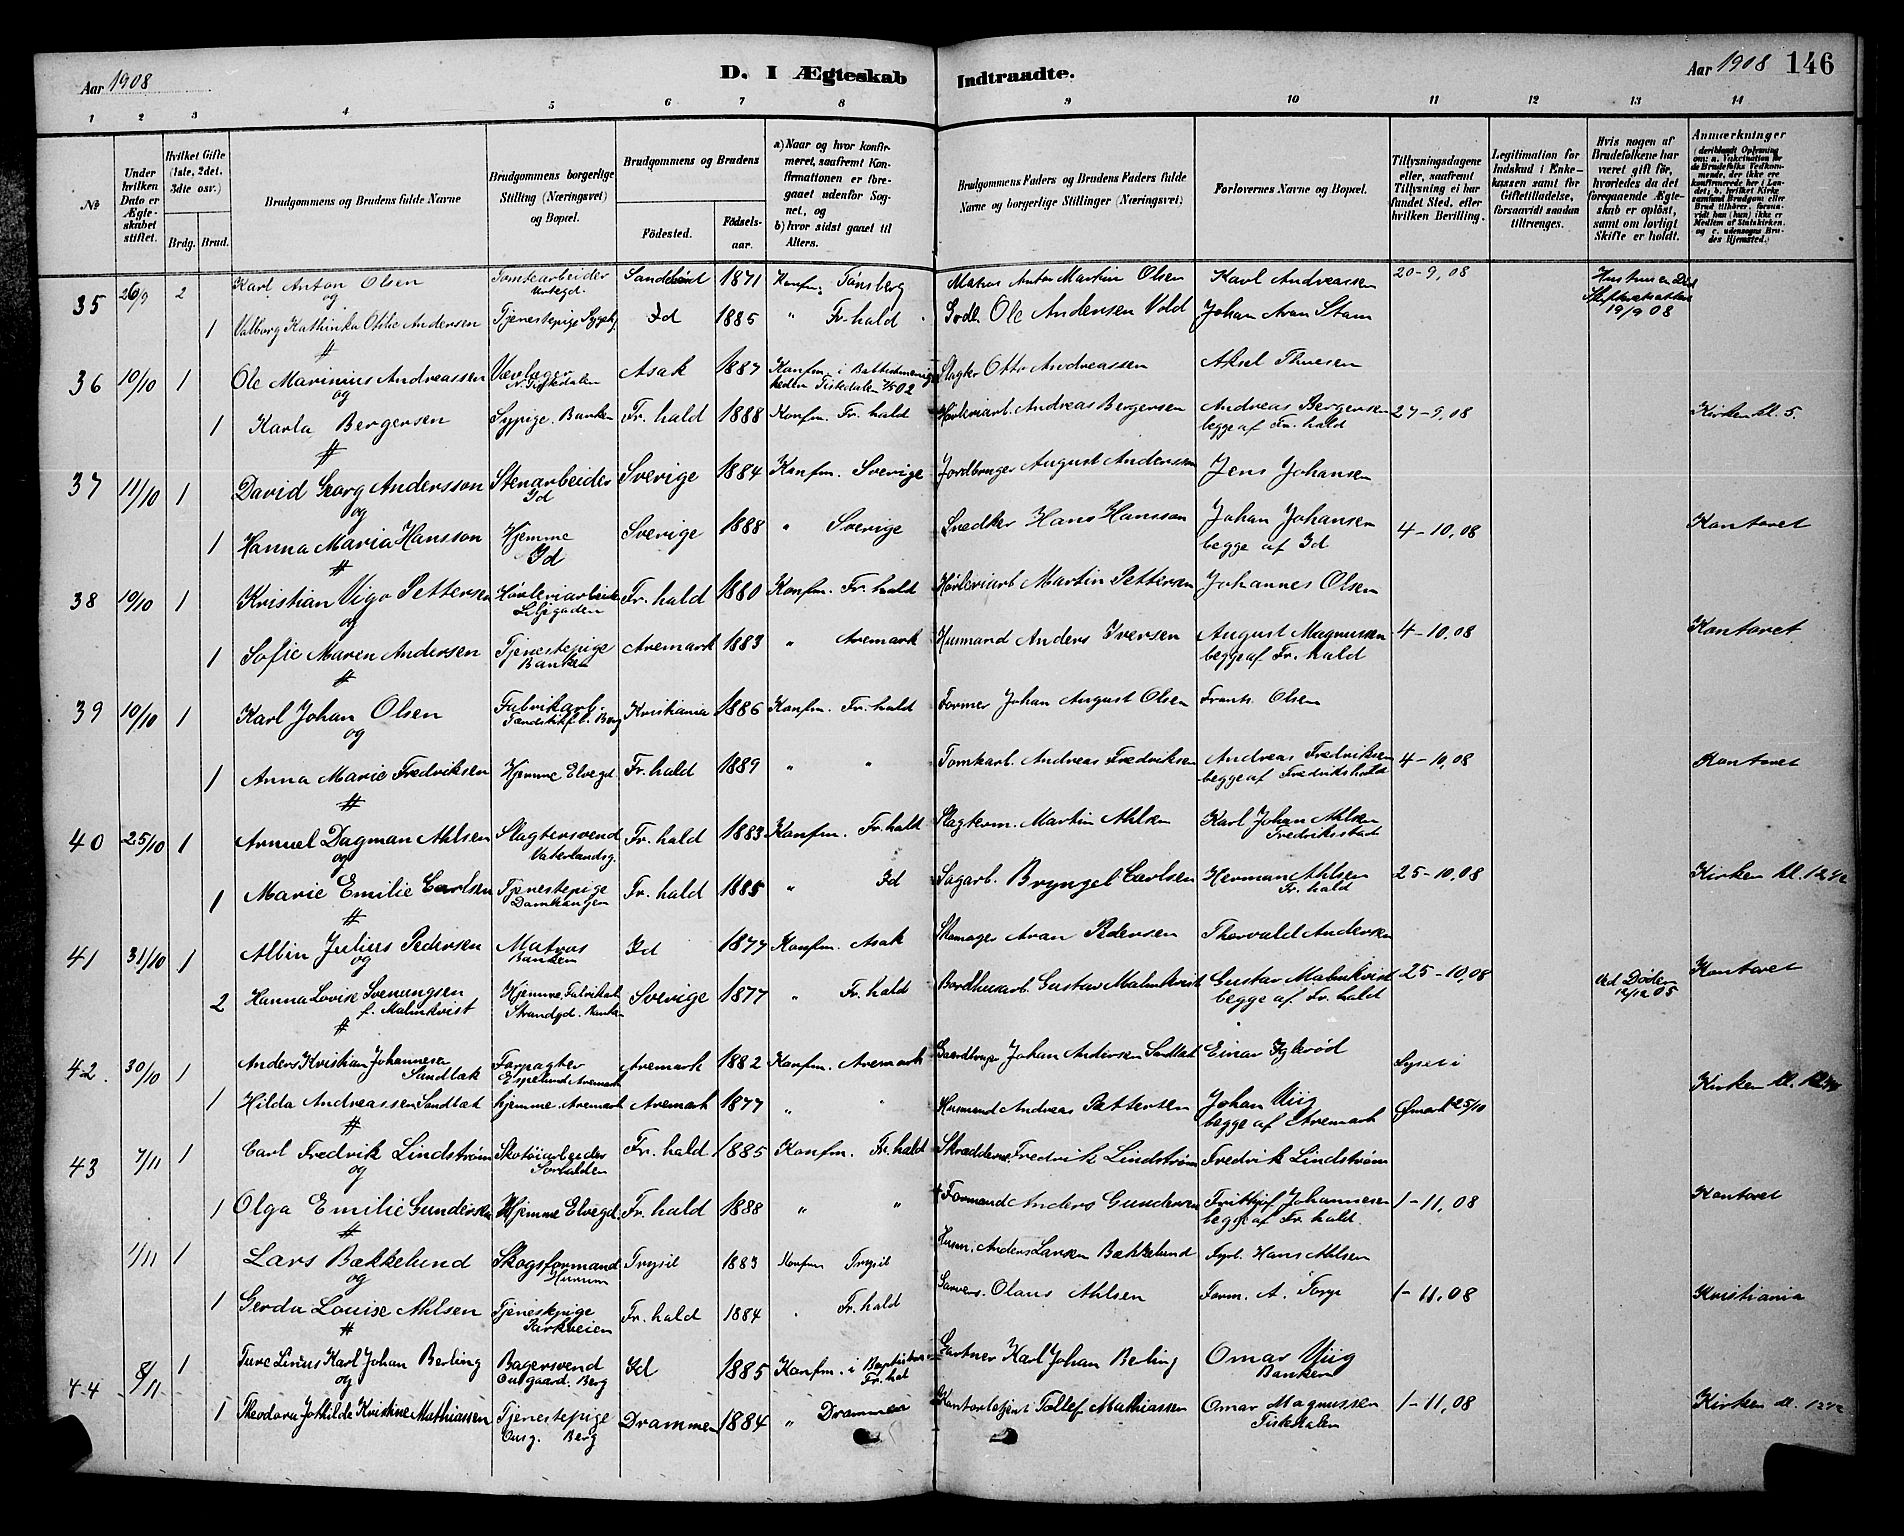 Aar 1908
D. I Ægteskab Indtraadte.
Aar 1908 146
1 2 3 4 5 6 7 8 9 10 11 12 13 14
No
Under hvilken Dato er Ægteskabet stiftet.
Hvilket Gifte (1ste, 2det, 3die osv.)
Brdg. Brud.
Brudgommens og Brudens fulde Navne
Brudgommens borgerlige Stilling (Næringsvei) og Bopæl.
Brudgommens og Brudens
Fødested. Fødselsaar.
a) Naar og hvor konfirmeret, saafremt Konfirmationen er foregaaet udenfor Sognet, og
b) hvor sidst gaaet til Alters.
Brudgommens Faders og Brudens Faders fulde Navne og borgerlige Stillinger (Næringsvei)
Forlovernes Navne og Bopæl.
Tillysningsdagene eller, saafremt Tillysning ei har fundet Sted, efter hvilken Bevilling.
Legitimation for Indskud i Enkekassen samt for Giftetilladelse, forsaavidt saadan tiltrænges.
Hvis nogen af Brudefolkene har været gift før, hvorledes da det foregaaende Ægteskab er opløst, samt om lovligt Skifte er holdt.
Anmærkninger
35 26/9 2 Karl Anton Olsen Tomtearbeider Sandehered 1871 Konfm. Tønsberg Matros Anton Martin Olsen Karl Andreassen 20-9, 08
og
1 Valborg Kathinka Otilie Andersen Tjenestepige Id 1885 " Fr.hald Ole Andersen Vold Johan Aran Stam 19/9 08
36 10/10 1 Ole Marinius Andreassen Asak 1887 Konfm. i Tistedalen 1/5 02 Slagter Otto Andreassen Aksel Thuesen
og
1 Karla Bergersen Sypige. Banken Fr.hald 1888 Konfm. Fr.hald Høvleriarb. Andreas Bergersen Andreas Bergersen 27-9, 08 Kirken kl. 5.
begge af Fr.hald
37 11/10 1 David Georg Andersson Stenarbeider Sverige 1884 Konfm. Sverige Jordbruger August Andersson Jens Johansen
og Id
1 Hanna Maria Hansson Hjemme Sverige 1888 " Sverige Snedker Hans Hansson Johan Johansen 4-10, 08 Kontoret
Id begge af Id
38 10/10 1 Kristian Vigo Pettersen Høvleriarbeider Fr.hald 1880 Konfm. Fr.hald Høvleriarb. Martin Pettersen Johannes Olsen
og
1 Sofie Maren Andersen Tjenestepige Aremark 1883 " Aremark Husmand Anders Iversen August Magnussen 4-10, 08 Kontoret
Banken begge af Fr.hald
39 10/10 1 Karl Johan Olsen Fabrikarb. Kristiania 1886 Konfm. Fr.hald Former Johan August Olsen Frants Olsen
og Tændstikfb. Berg
1 Anna Marie Fredriksen Hjemme Elvegd. Fr.hald 1889 " " Tomtarb. Andreas Fredriksen Andreas Fredriksen 4-10, 08 Kontoret
begge af Fredrikshald
40 25/10 1 Arnuel Dagman Ahlsen Slagtersvend Fr.hald 1883 Konfm. Fr.hald Slagterm. Martin Ahlsen Karl Johan Ahlsen
og Vaterlandsg. Fredriksstad
1 Marie Emilie Carlsen Tjenestepige Fr.hald 1885 " Id Sagarb. Bryngel Carlsen Herman Ahlsen 25-10, 08 Kirken kl. 12 1/2
Damhaugen Fr.hald
41 31/10 1 Albin Julius Pedersen Matros Id 1877 Konfm. Asak Skomager Aran Pedersen Thorvald Andersen
og Banken
2 Hanna Lovise Svenungsen Hjemme Fabrikarb. Sverige 1877 " Fr.hald Bordhusarb. Gustav Malmkvist Gustav Malmkvist 25-10, 08 Ved Døden 12/12 05 Kontoret
f. Malmkvist Strandgd. begge af Fr.hald
42. 30/10 1 Anders Kristian Johannesen Sandtak Forpagter Aremark 1882 Konfm. Aremark Gaardbruger Johan Andersen Sandtak Einar Iglerød Lyset i
Espelund Aremark
1 Hilda Andreassen Sandtak hjemme Aremark Aremark 1877 " " Husmand Andreas Pettersen Johan Viig Ømark 25/10 Kirken kl. 12 1/2
begge af Aremark
43 7/11 1 Carl Fredrik Lindstrøm Skotøiarbeider Fr.hald 1885 Konfm. Fr.hald Skrædderm. Fredrik Lindstrøm Fredrik Lindstrøm
og Sørhalden
1 Olga Emilie Gundersen Hjemme Elvegd. Fr.hald 1888 " " Formand Anders Gundersen Frithjof Johannesen 1-11, 08 Kontoret
begge af Fr.hald.
1/11 1 Lars Bækkelund Skogsformand Trysil 1883 Konfm Trysil Husm. Anders Larsen Bækkelund Fyrb. Hans Ahlsen
og Hurum
1 Gerda Louise Ahlsen Tjenestepige Fr.hald 1884 " Fr.hald Olaus Ahlsen Form. A. Torp 1-11, 08 Kristiania
Parkveien
44 8/11 1 Ture Linus Karl Johan Berling Bagersvend Id 1885 Konfm. i Fr.hal Gartner Karl Johan Berling Omar Viig
og Ousgaard. Berg Banken
1 Theodora Jothilde Kristine Mathiassen Tjenestepige Drammen 1884 " Drammen Kontorbetjent Tollef Mathiassen Omar Magnussen 1-11, 08 Kirken kl. 12 1/2
Ousg. Berg Tistedalen